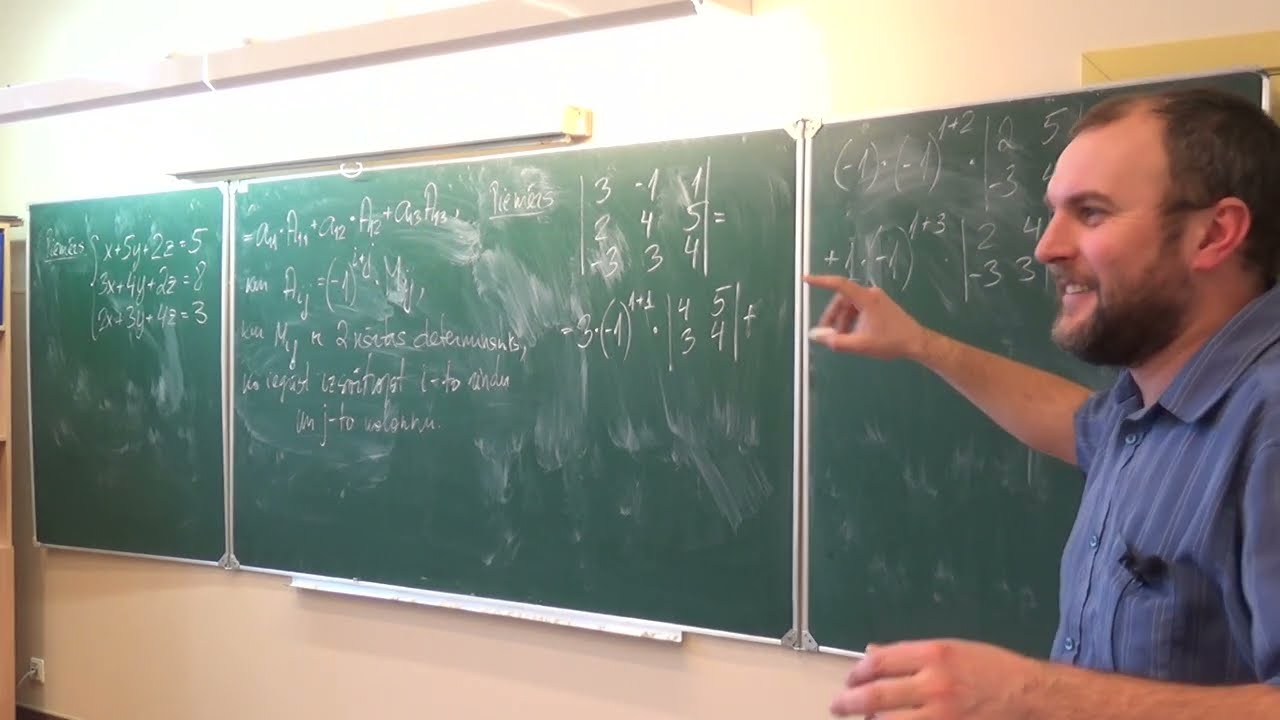 Piemērs
x+5y+2z=5
3x+4y+2z=8
2x+3y+4z=3
=a₁₁·A₁₁+a₁₂·A₁₂+a₁₃A₁₃,
kur Aᵢⱼ=(-1)ⁱ⁺ʲ·Mᵢⱼ,
kur Mᵢⱼ ir 2.kārtas determinants,
ko iegūst izsvītrojot i-to rindu
un j-to kolonnu.
Piemērs
|3 -1 1|
|2 4 5|=
|-3 3 4|
=3·(-1)¹⁺¹·|4 5|+
|3 4|
(-1)·(-1)¹⁺²·|2 5|
|-3 4
+1·(-1)¹⁺³·|2 4
|-3 3|